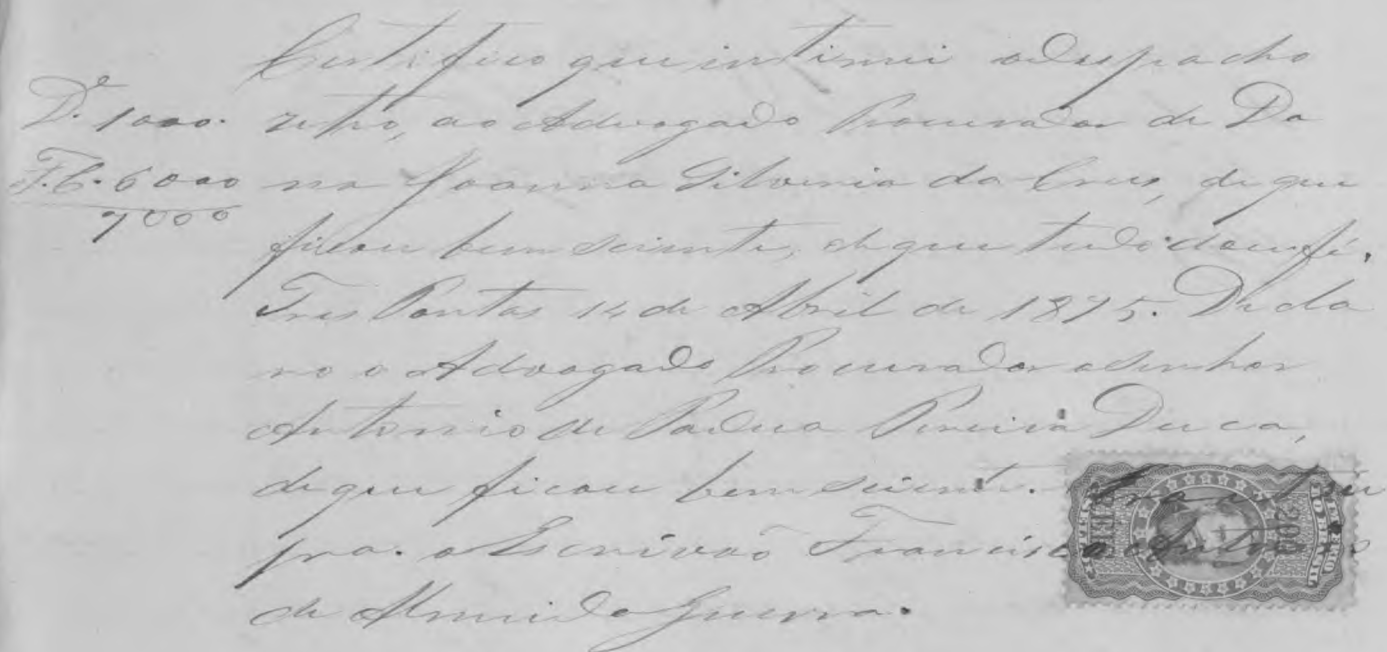 Certifico que intimei o despacho
De. 1000. retro, ao Advogado Procurador de Do
F.C. 6000 na Joanna Silveria da Cruz, de que
7000
ficou bem sciente, do que tudo dou fé.
Tres Pontas 14 de Abril de 1875. Decla
ro o Advogado Procurador o Senhor
Antonio de Padua Pereira Duca,
de que ficou bem sciente. Era e Su
pra. o Escrivaõ Francisco Antonio
de Almeida Guerra.
200